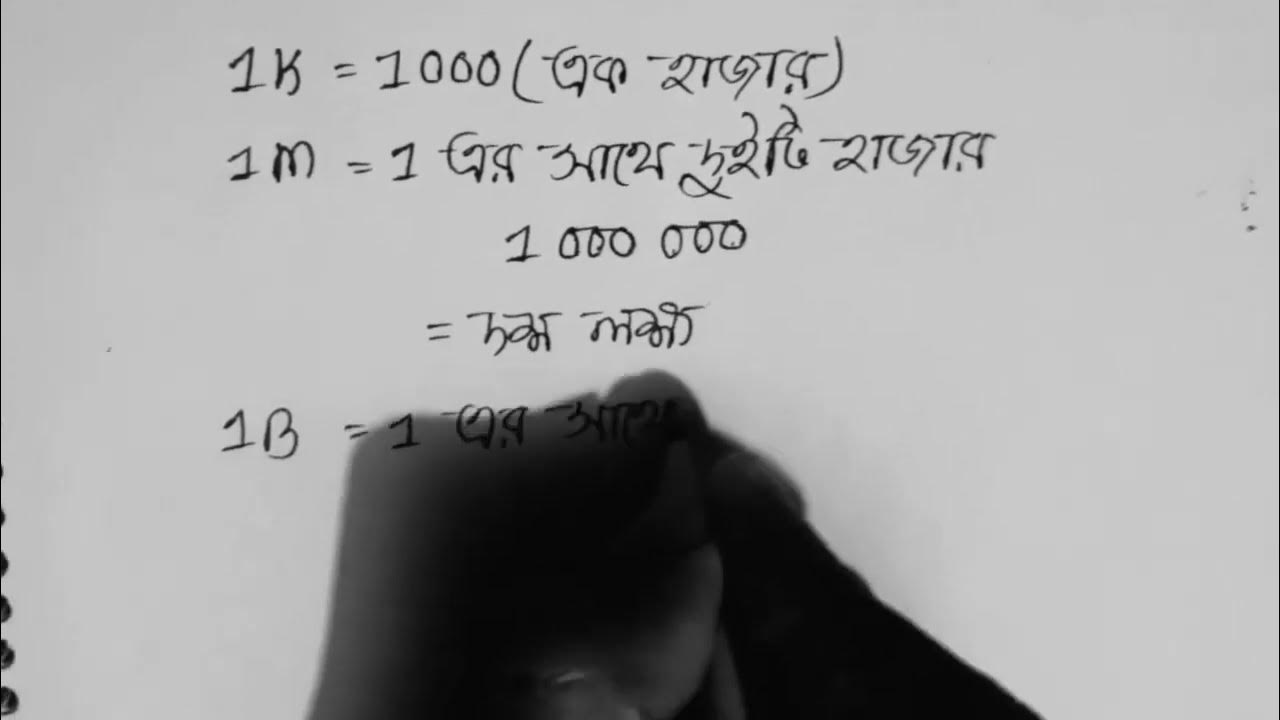 1K = 1000 (এক হাজার)
1M = 1 এর সাথে দুইটি হাজার
1 000 000
= দশ লক্ষ্য
1B = 1 এর সাথে